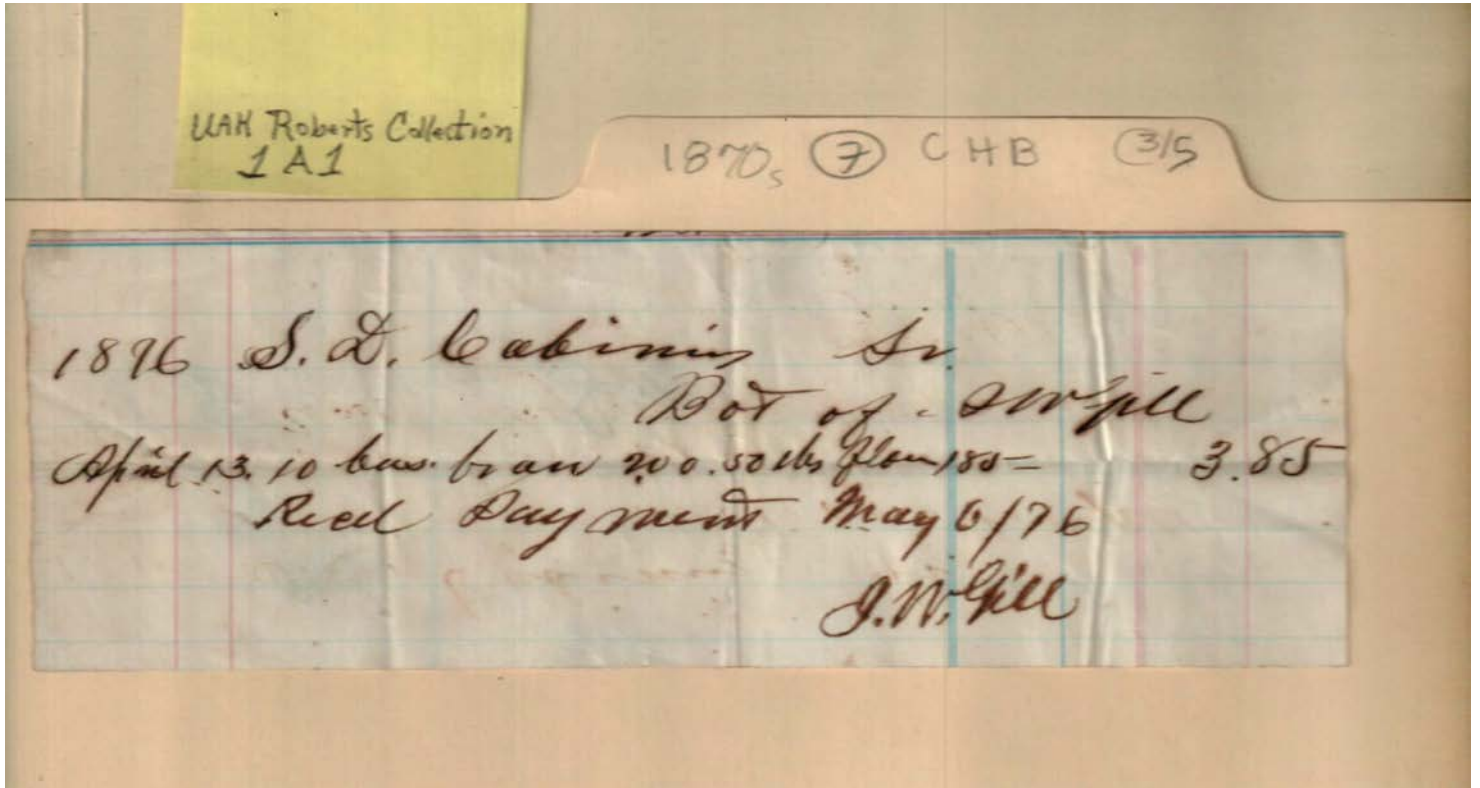 UAH Roberts Collection
1A1
1870s 7 CHB 3/5
1876 S. D. Cabiniss Sr.
Bot of J W Gill
April 13. 10 bus. bran 200. 50 lbs flour 185 = 3.85
Recd Payment May 6/76
J. W. Gill